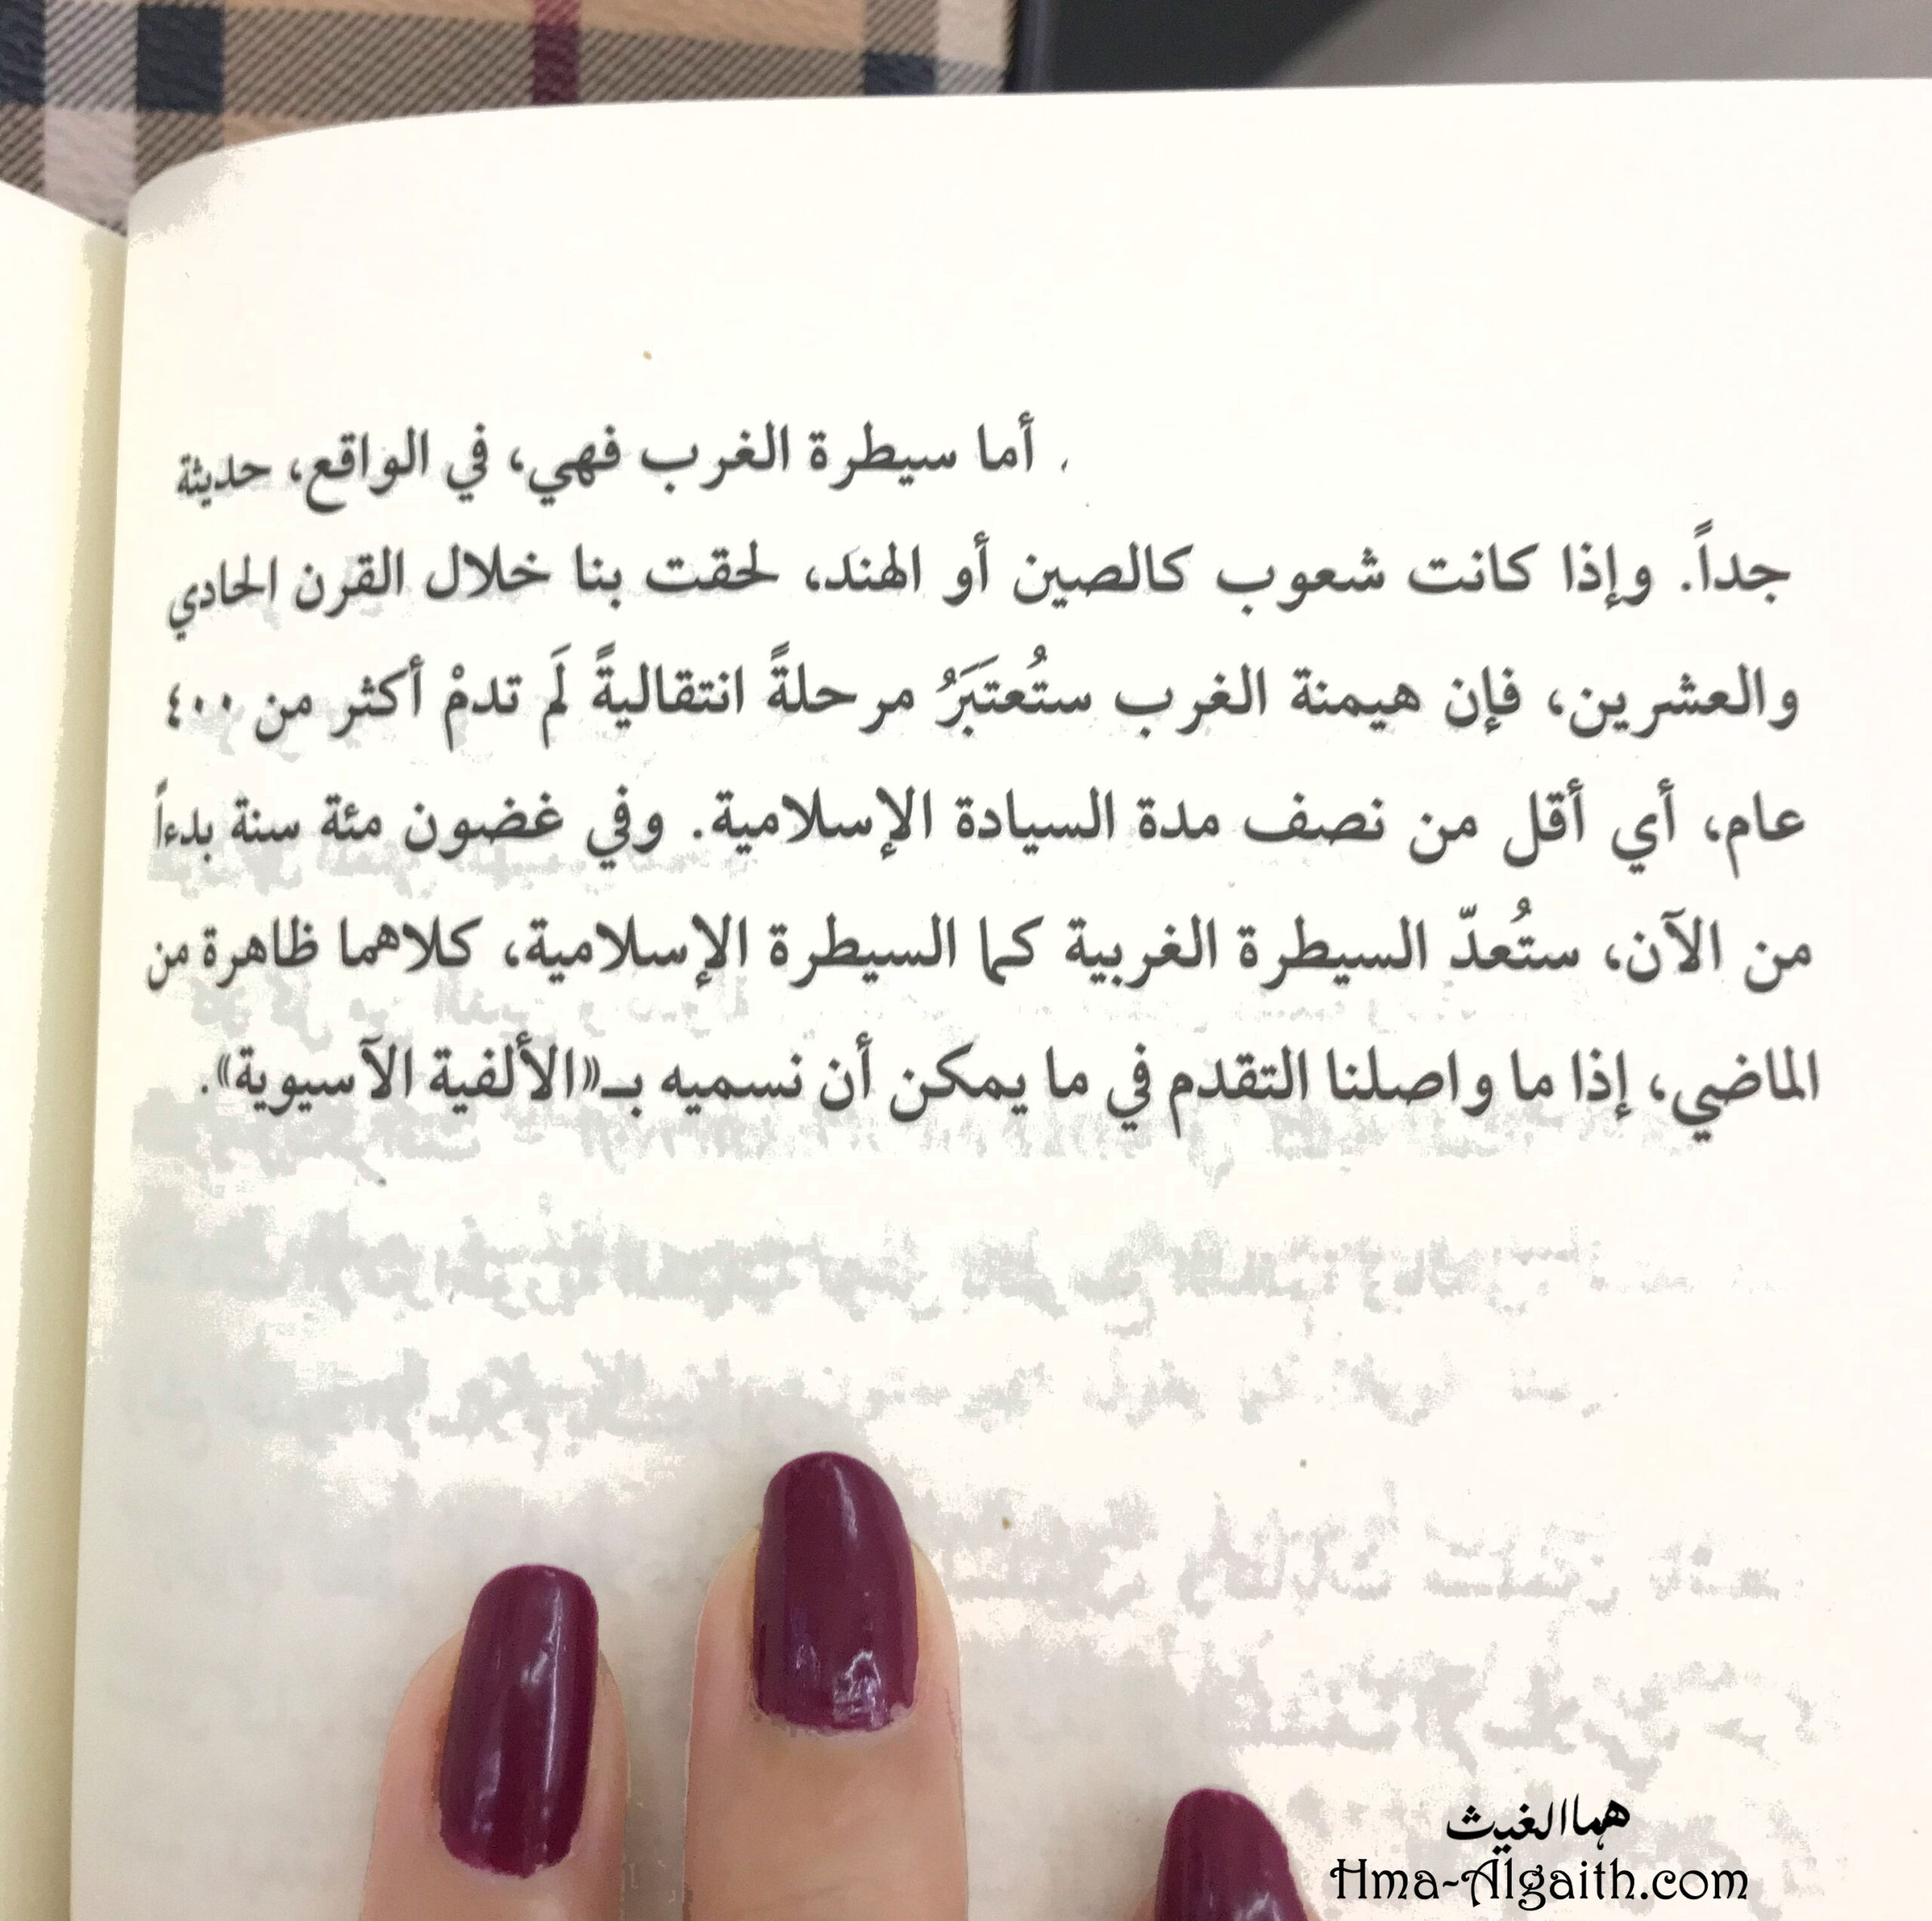 أما سيطرة الغرب فهي، في الواقع، حديثة
جداً. وإذا كانت شعوب كالصين أو الهند، لحقت بنا خلال القرن الحادي
والعشرين، فإن هيمنة الغرب ستُعتَبَرُ مرحلةً انتقاليةً لَم تدمْ أكثر من ٤٠٠
عام، أي أقل من نصف مدة السيادة الإسلامية. وفي غضون مئة سنة بدءاً
من الآن، ستُعدّ السيطرة الغربية كما السيطرة الإسلامية، كلاهما ظاهرة من
الماضي، إذا ما واصلنا التقدم في ما يمكن أن نسميه بـ«الألفية الآسيوية».
هما الغيث
Hma-Algaith.com